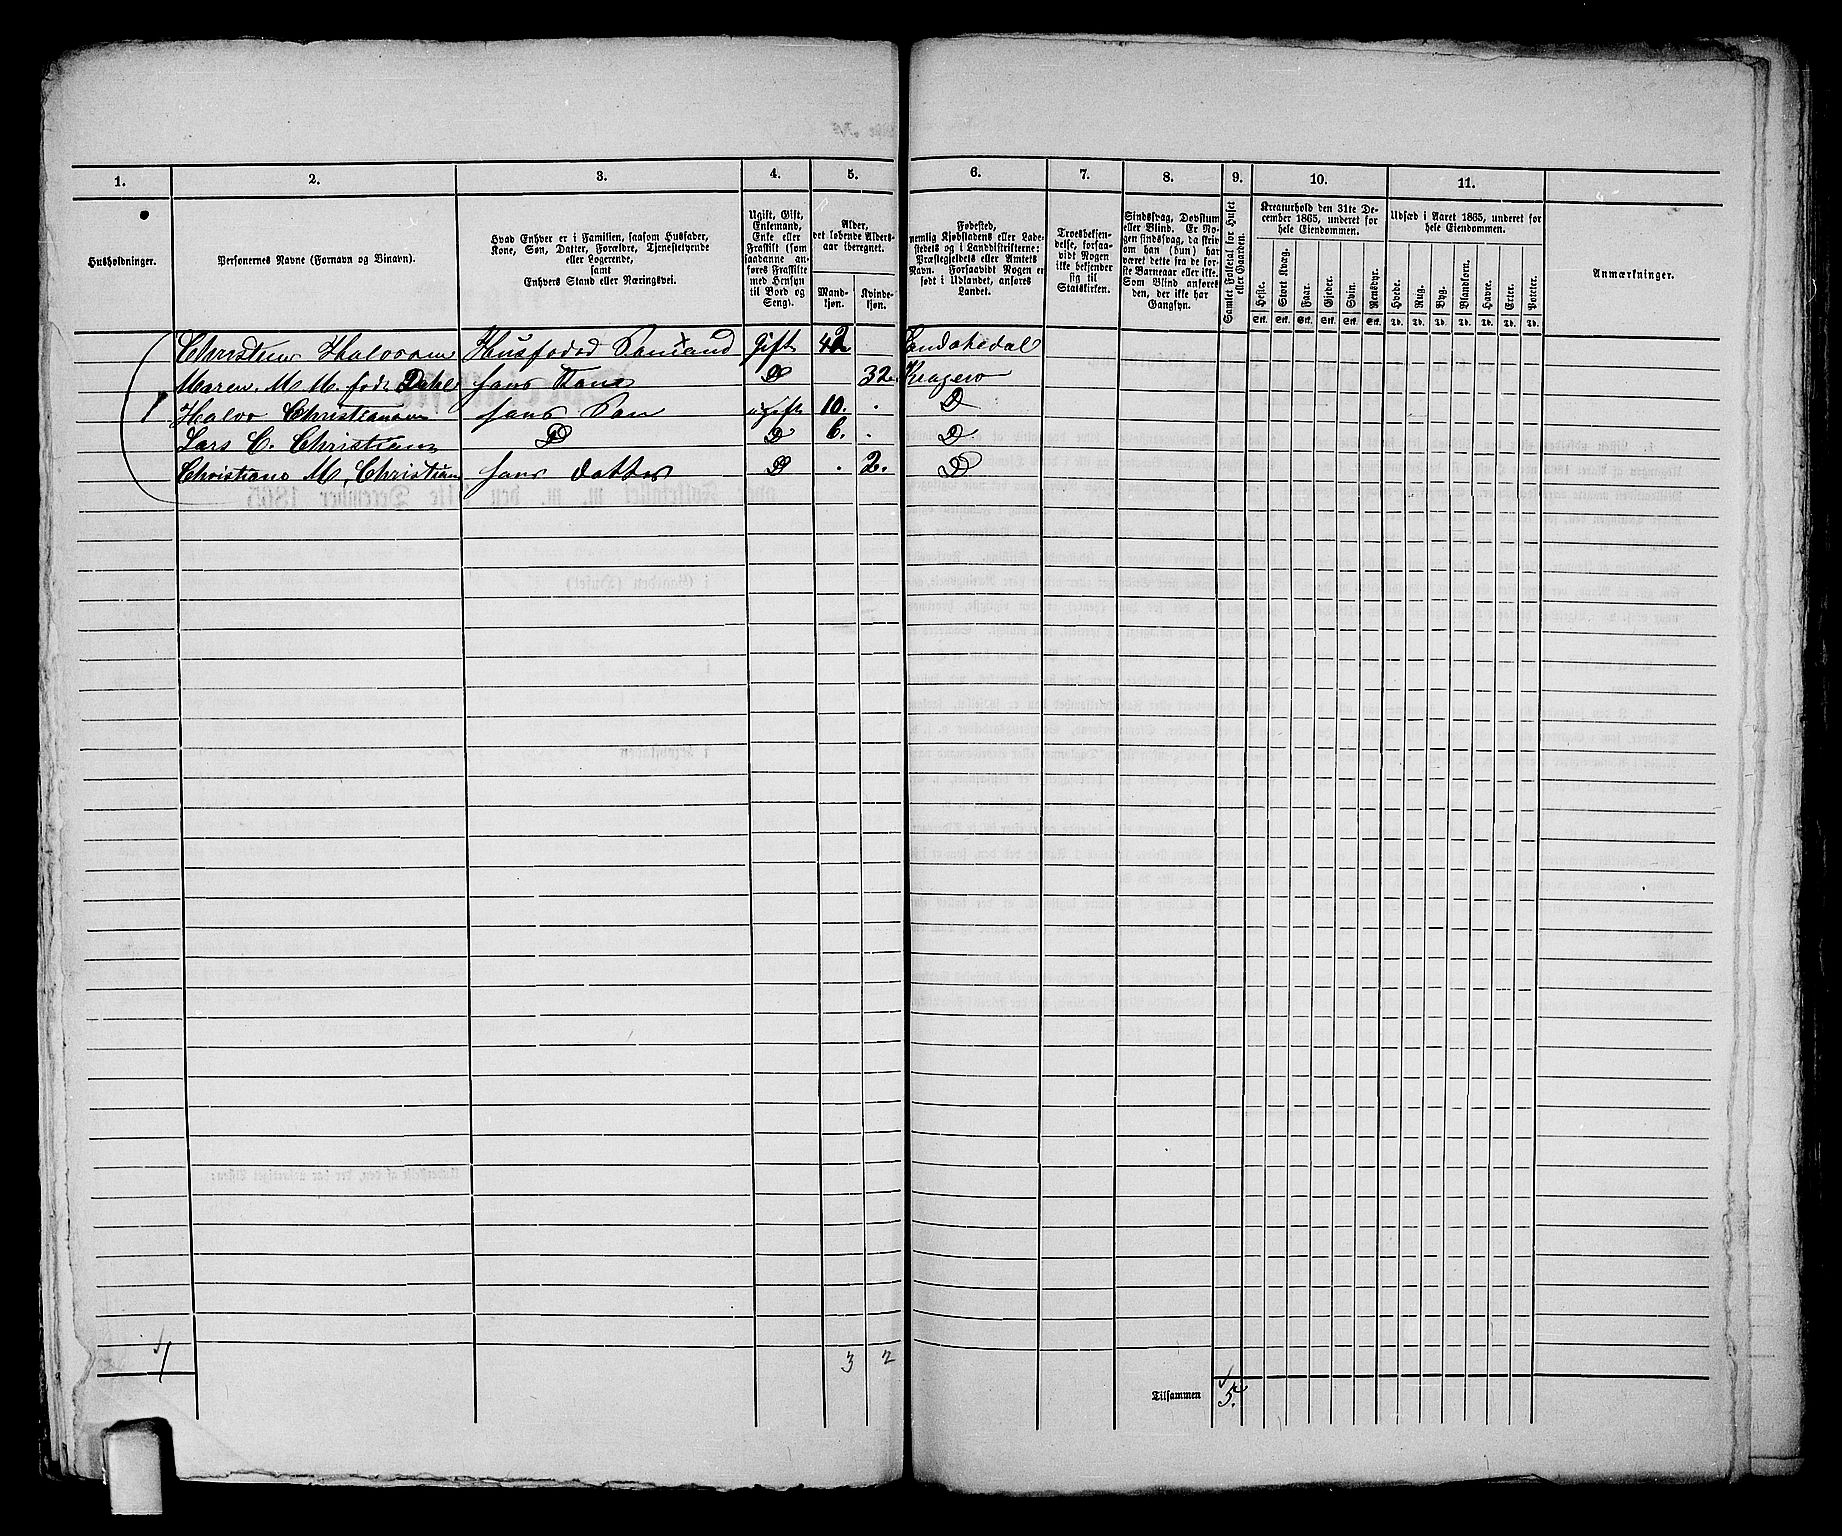 1. 2. 3. 4. 5. 6. 7. 8. 9. 10. 11.
Husholdninger.
Personernes Navne (Fornavn og Binavn).
Hvad Enhver er i Familien, saasom Husfader,
Kone, Søn, Datter, Forældre, Tjenestetyende
eller Logerende,
samt
Enhvers Stand eller Næringsvei.
Ugift, Gift,
Enkemand,
Enke eller
Fraskilt (som
saadanne an-
føres Fraskilte
med Hensyn
til Bord og
Seng).
Alder,
det løbende Alders-
aar iberegnet.
Mand-
kjøn.
Kvinde-
kjøn.
Fødested,
nemlig Kjøbstadens eller Lade-
stedets og i Landdistrikterne:
Præstegjeldets eller Amtets
Navn. Forsaavidt Nogen er
født i Udlandet, anføres
Landet.
Troesbekjen-
delse, forsaa-
vidt Nogen
ikke bekjender
sig til
Statskirken.
Sindssvag, Døvstum
eller Blind. Er No-
gen sindssvag, da skriv
om han (hun) har
været dette fra de for-
ste Barneaar eller ikke.
Som Blind anføres
den, der ikke har
Gangsyn.
Samlet Folketal for Huset
eller Gaarden.
Kreaturhold den 31te De-
cember 1865, underet for
hele Eiendommen.
Heste. Stort Kvæg. Faar. Gjeder. Svin. Rensdyr.
Stk. Stk. Stk. Stk. Stk. Stk.
Udsæd i Aaret 1865, underet for
hele Eiendommen.
Hvede. Rug. Byg. Blandkorn. Havre. Erter. Poteter.
Td. Td. Td. Td. Td. Td. Td.
Anmærkninger.
Christen Halvorsen Husfoded Gift 42 Sandøkedal
Maren M M. fød Dahl hans Kone D 32 Kragerø
1 Halvo Christiansen hans Søn ugift 10. . D
Lars C. Christians D D 6. . D
Christiane M. Christians hans datter D . 2. D
1 3 2
Tilsammen 5.